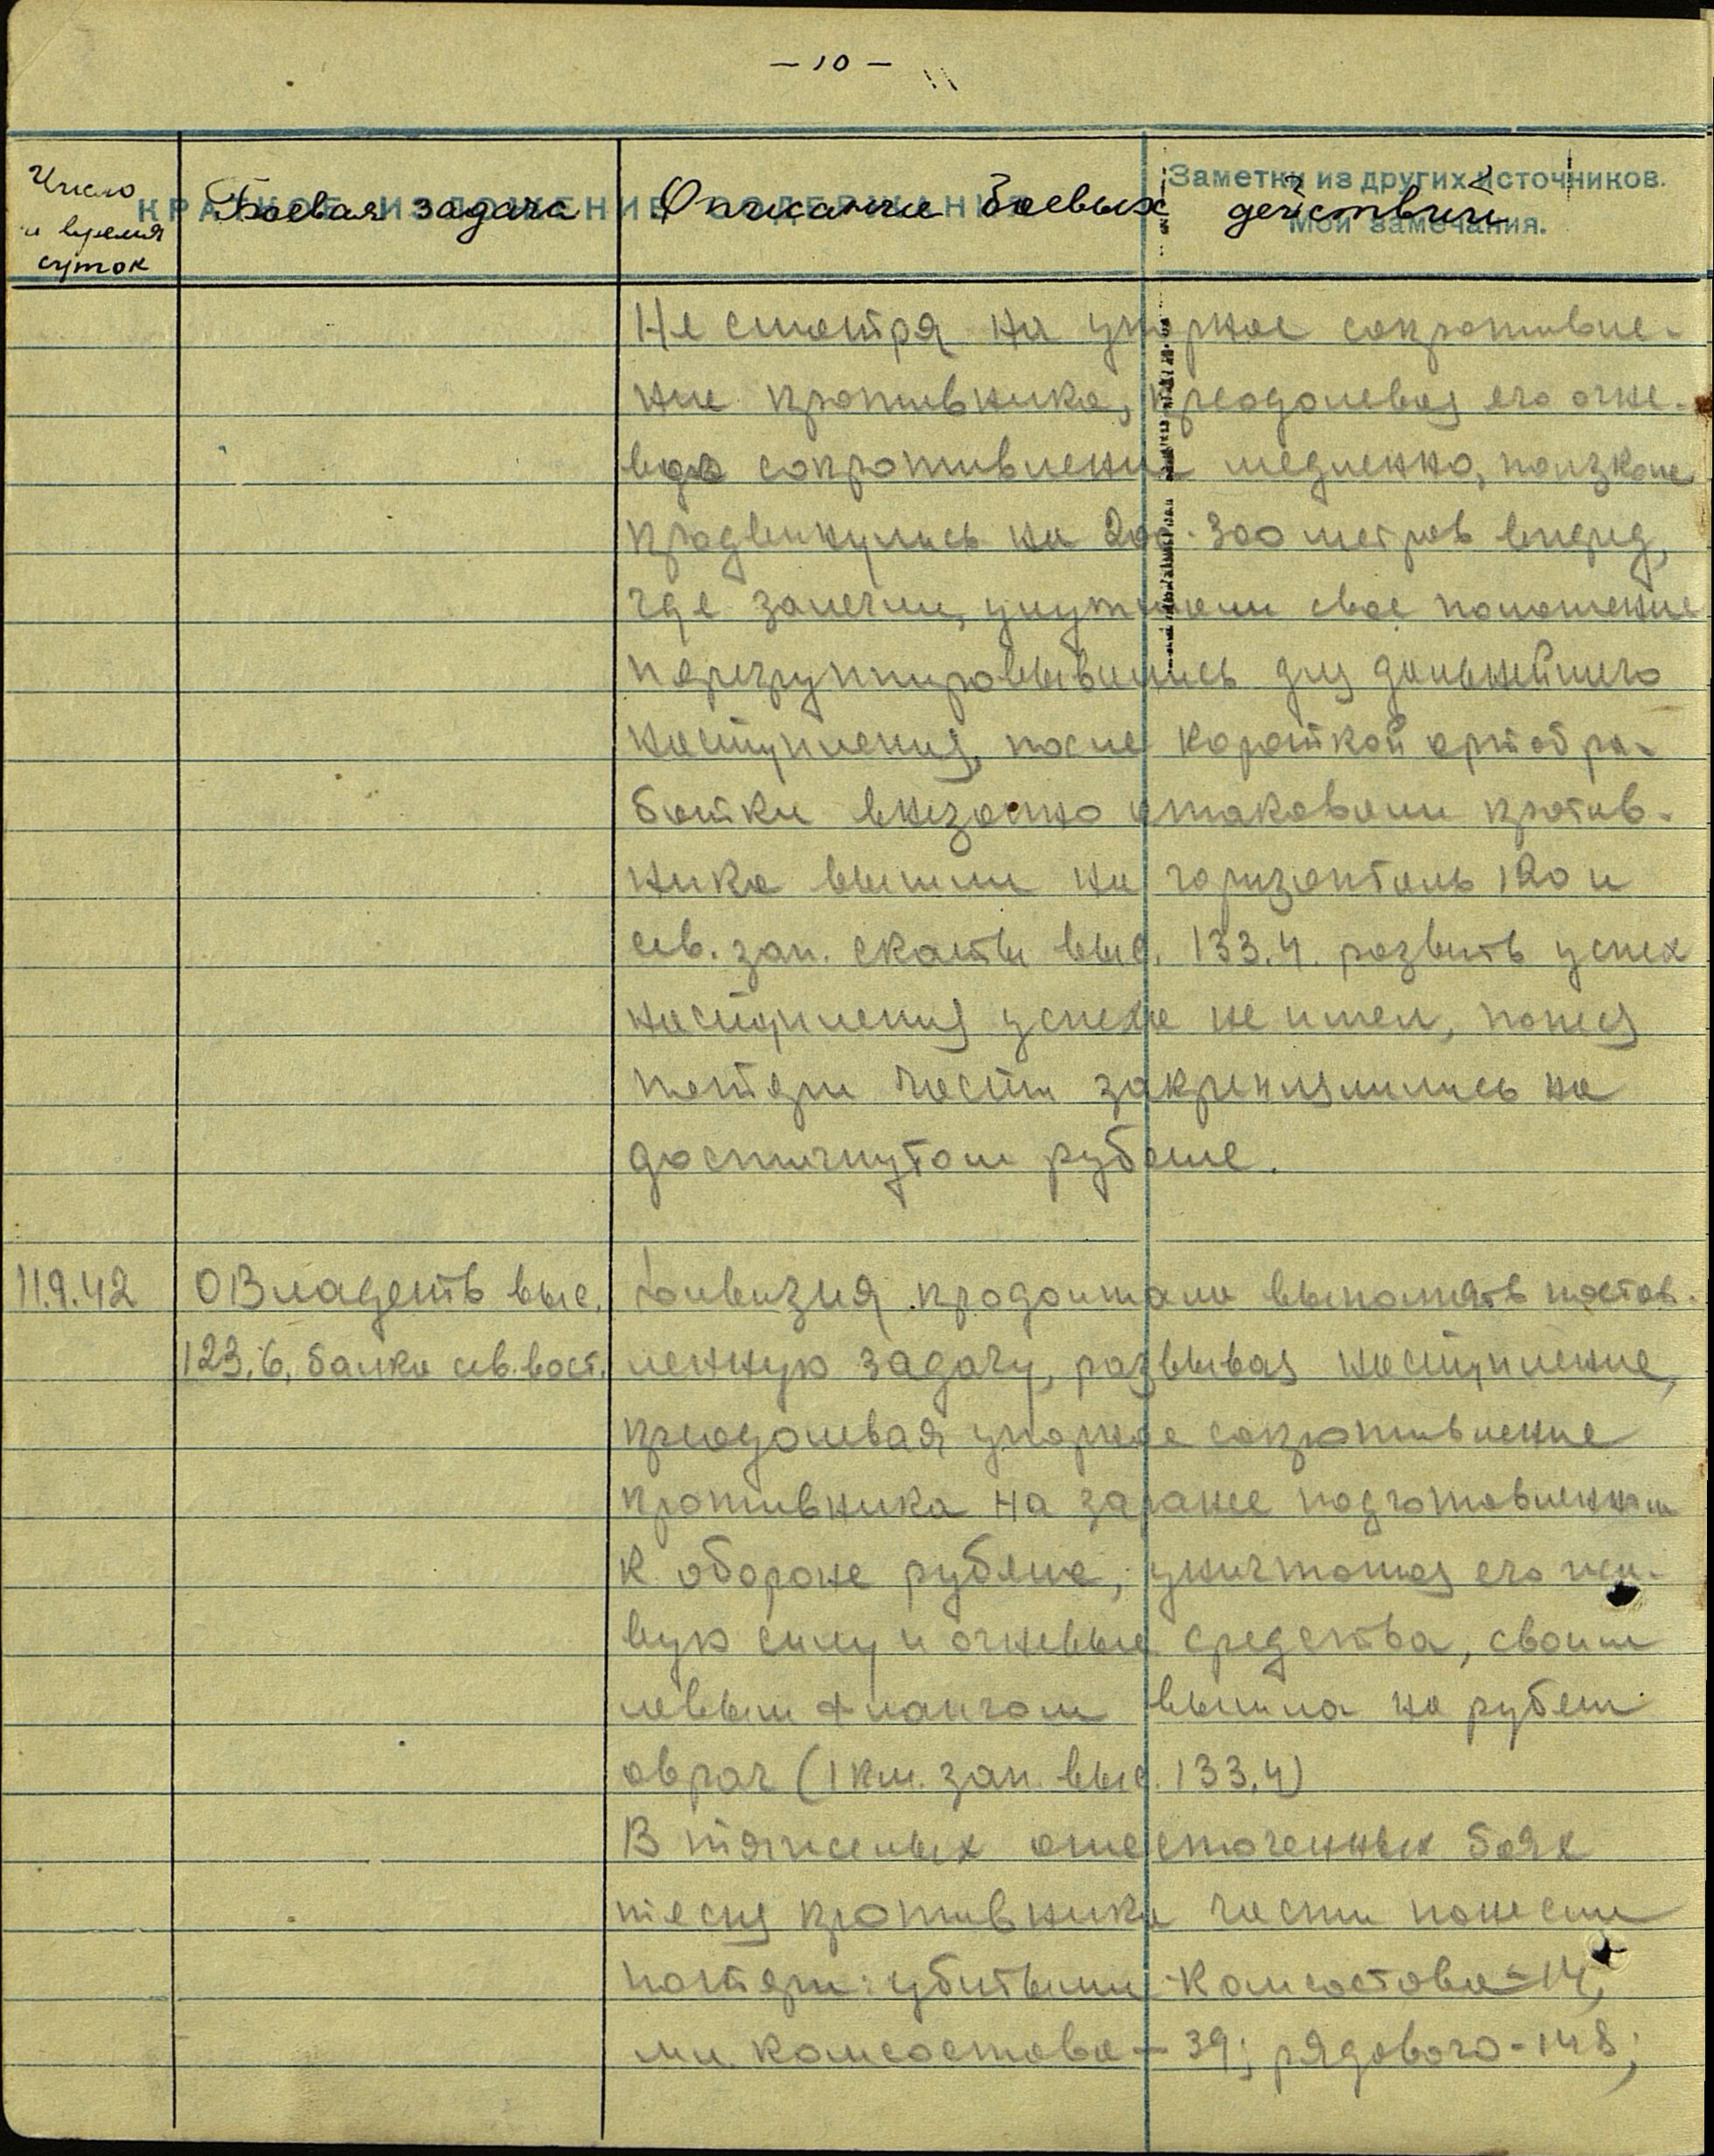 - 10 -
Число и время суток
Боевая задача
Описание боевых действий
КРАТКОЕ ИЗЛОЖЕНИЕ СОДЕРЖАНИЯ
Заметки из других источников.
Мои замечания.
Не смотря на упорное сопротивле-
ние противника, преодолевая его огне-
вое сопротивления медленно, ползком
продвинулись на 200-300 метров вперед,
где залегли, улутшели свое положение
перегруппировывошись для дальнейшего
наступления, после короткой артобра-
ботки внезапно атаковали против-
ника вышли на горизонталь 120 и
сев. зап. скаты выс. 133.4. развить успех
наступления успеха не имел, понеся
потери части закреплялились на
достигнутом рубеже.
11.9.42
ОВладеть выс.
123,6, балка сев. вост.
Дивизия продолжала выполнять постав-
ленную задачу, развывая наступление,
преодолевая упорное сопротивление
противника на заранее подготовленном
к обороне рубеже, уничтожая его жи-
вую силу и огневые средства, своим
левым флангом вышла на рубеж
овраг (1 км. зап. выс. 133,4)
В тяжелых ожесточенных боях
тесня противника части понесли
потери: убитыми - комсостава - 14,
мл. комсостава - 39; рядового - 148;